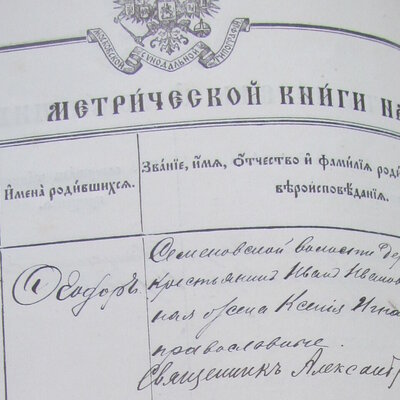 МОСКОВСКОЙ СУНОДАЛЬНОЙ ТИПОГРАФІИ
МЕТРИ́ЧЕСКОЙ КНИ́ГИ НА
И҆мена̀ роди́вшихся.
Зва́нїе, и҆́мя, ѻ҆́тчество и҆ фами́лїя роди
вѣроисповѣ́данїя.
Ѳеодоръ
Семеновской волости дер
крестьянинъ Иванъ Иванов
ная жена Ксенія Игна
православные.
Священникъ Александ